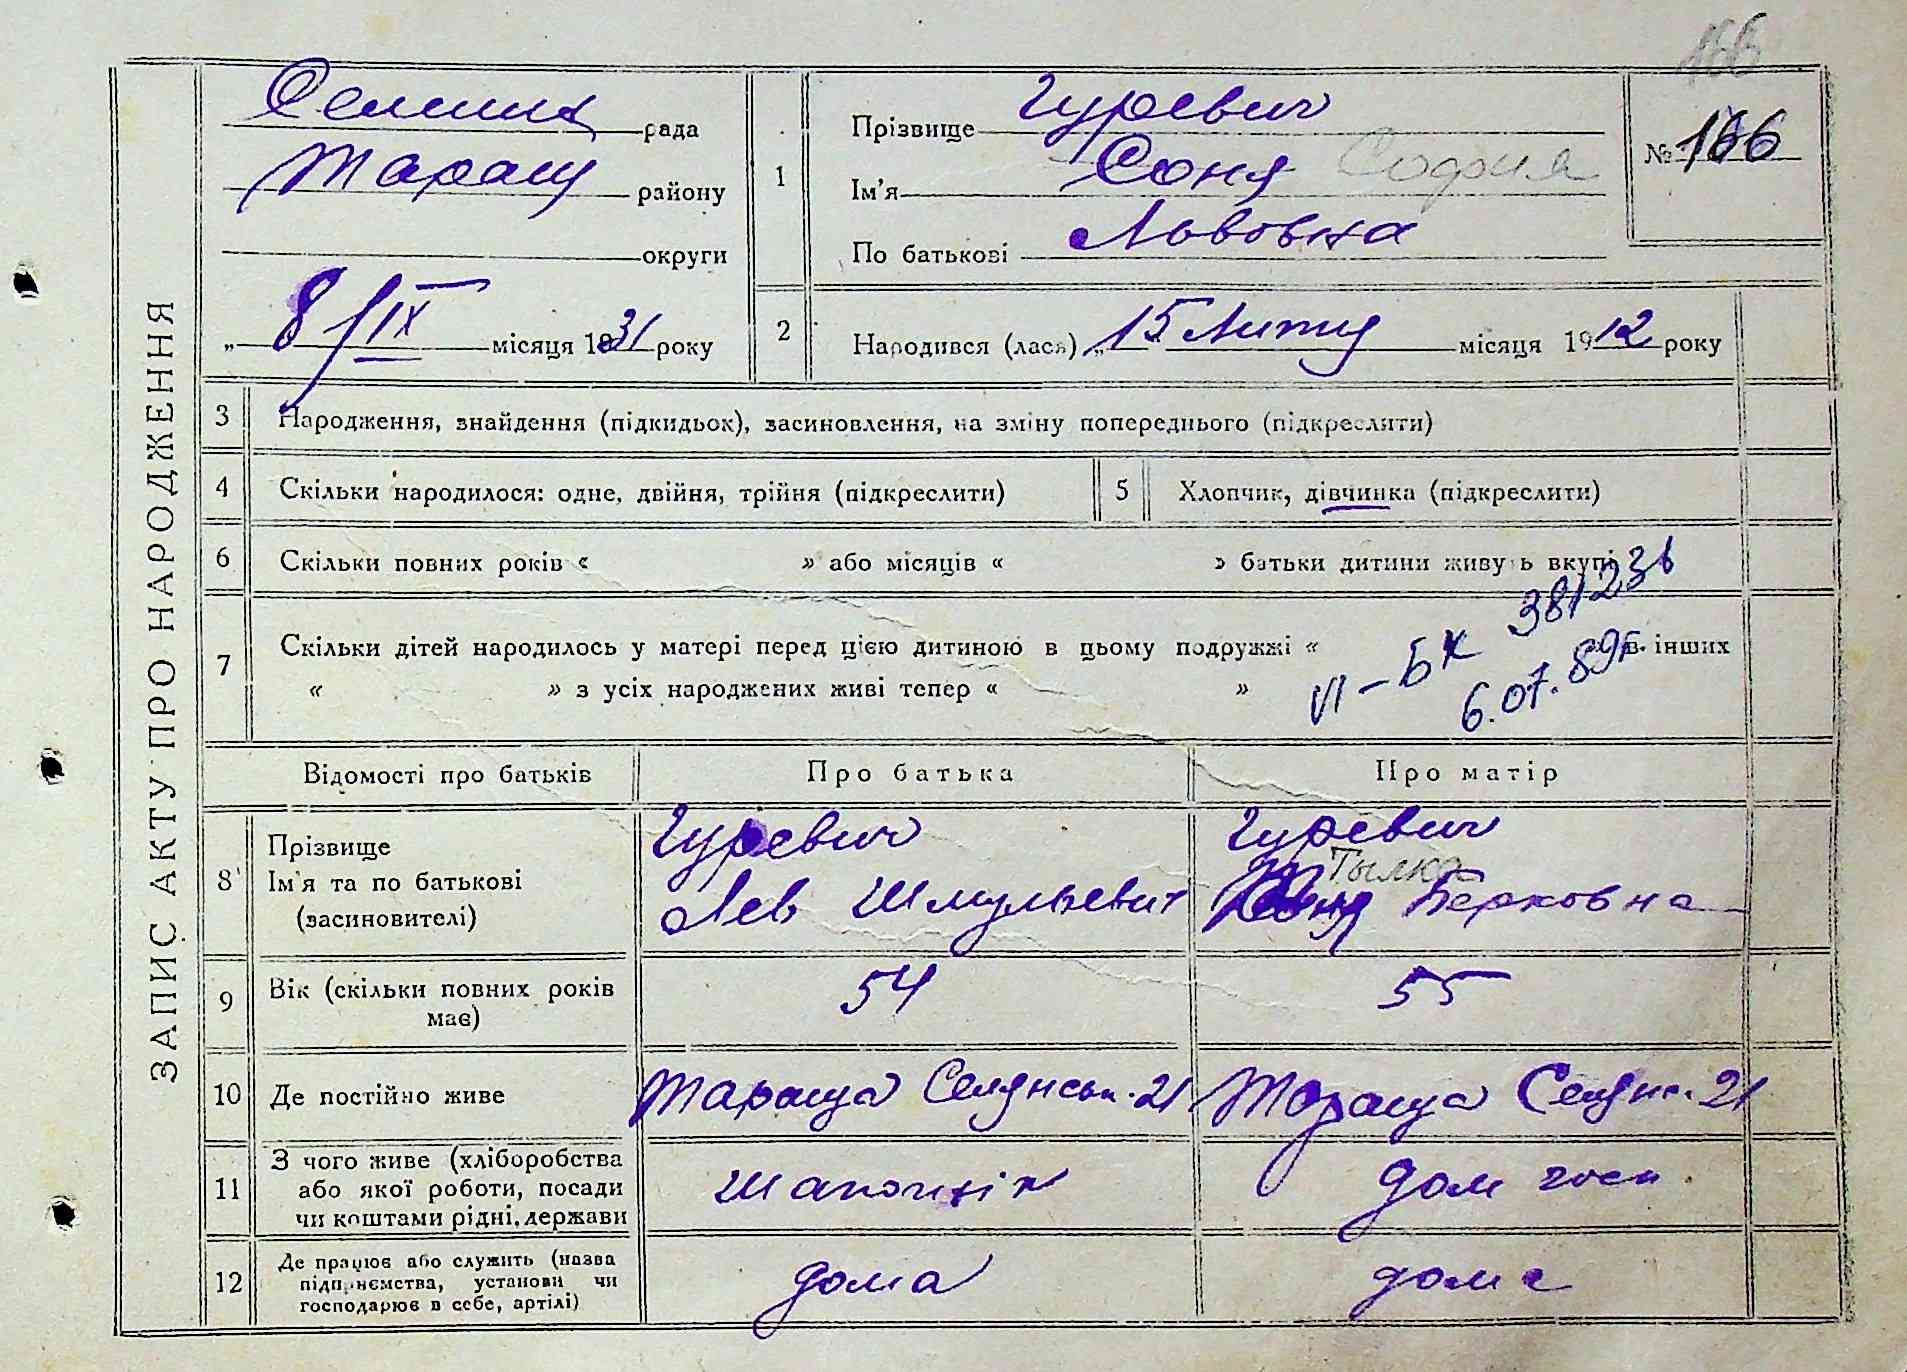 166
ЗАПИС АКТУ ПРО НАРОДЖЕННЯ
Селищ рада
Таращ району
округи
„ 8/IX місяця 1931 року
1
Прізвище Гуревич
Ім'я Соня София
По батькові Львовна
№ 166
2
Народився (лася) „ 15 Лютого місяця 1912 року
3 Народження, знайдення (підкидьок), засиновлення, на зміну попереднього (підкреслити)
4 Скільки народилося: одне, двійня, трійня (підкреслити)
5 Хлопчик, дівчинка (підкреслити)
6 Скільки повних років « » або місяців « » батьки дитини живуть вкупі
7 Скільки дітей народилось у матері перед цією дитиною в цьому подружжі « в інших
« » з усіх народжених живі тепер « »
VI-БК 381236
6.07.89г.
Відомості про батьків Про батька Про матір
8 Прізвище Гуревич Гуревич
Тылка
Ім'я та по батькові Лев Шмульевич Берковна
(засиновителі)
9 Вік (скільки повних років 54 55
має)
10 Де постійно живе Тараща Селянськ. 21 Тараща Селянс. 21
11 З чого живе (хліборобства
або якої роботи, посади шапочнік дом госп.
чи коштами рідні, держави
12 Де працює або служить (назва
підприємства, установи чи дома дома
господарює в себе, артілі)